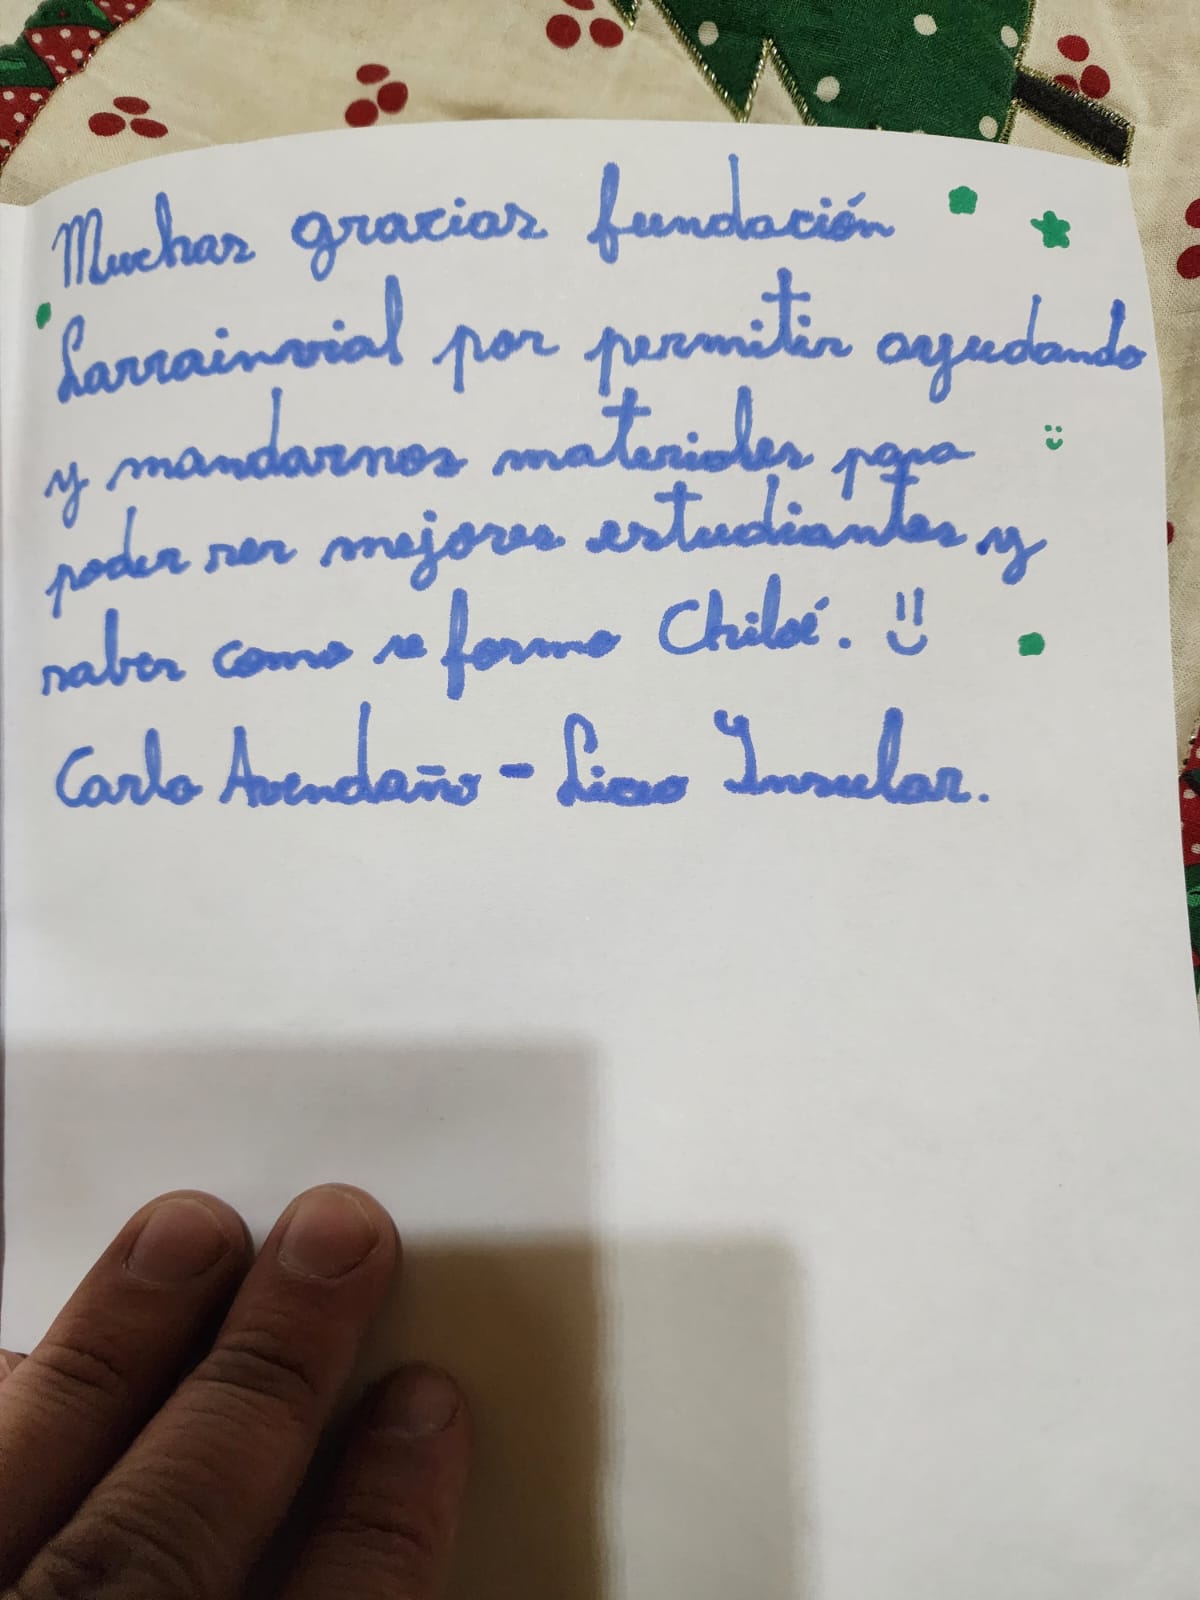 Muchas gracias fundación
Larrainvial por permitir ayudando
y mandarnos materiales para
poder ser mejores estudiantes y
saber como se formo Chiloé.
Carla Avendaño - Liceo Insular.